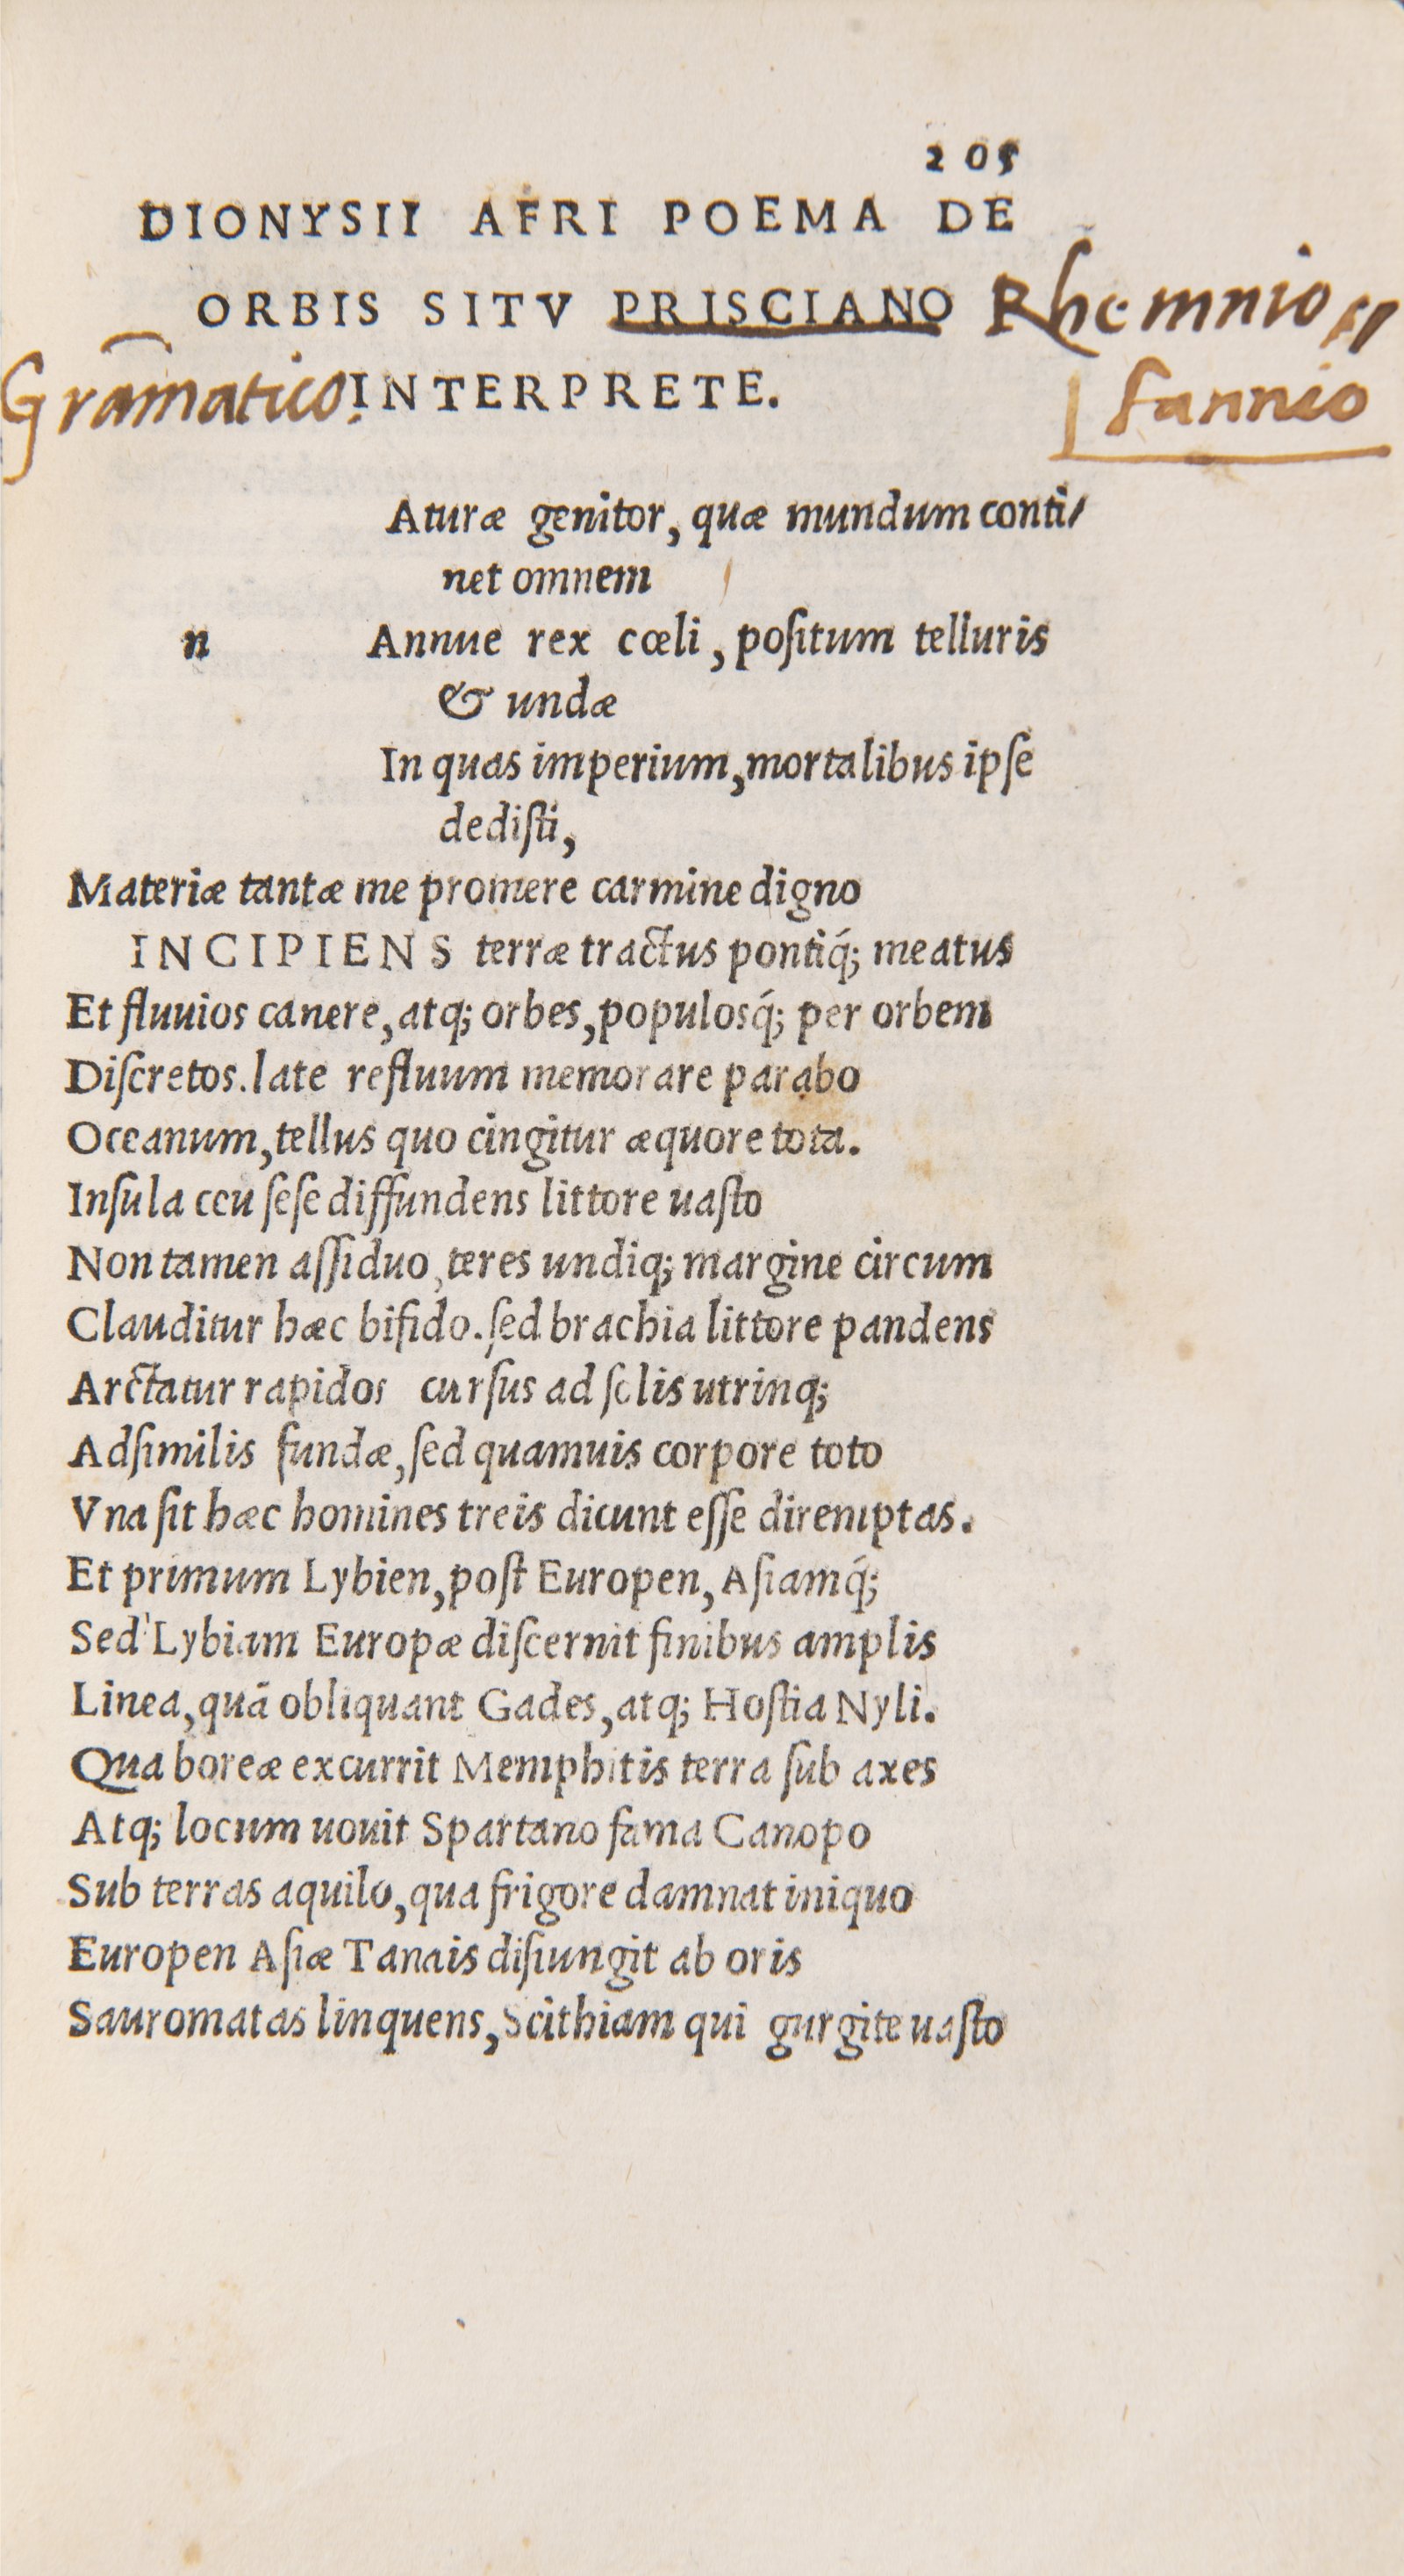 205
DIONYSII AFRI POEMA DE
ORBIS SITV PRISCIANO Rhemnio
Gram̄atico. INTERPRETE. fannio
Aturæ genitor, quæ mundum conti/
net omnem
n Annue rex cœli, poſitum telluris
& undæ
In quas imperium, mortalibus ipſe
dediſti,
Materiæ tantæ me promere carmine digno
INCIPIENS terræ tractus pontiq́; meatus
Et fluuios canere, atq; orbes, populosq́; per orbem
Diſcretos. late refluum memorare parabo
Oceanum, tellus quo cingitur æquore tota.
Inſula ceu ſeſe diffundens littore uaſto
Non tamen aſſiduo, teres undiq; margine circum
Clauditur hæc bifido. ſed brachia littore pandens
Arctatur rapidos curſus ad ſolis utrinq;
Adſimilis fundæ, ſed quamuis corpore toto
Vna ſit hæc homines treis dicunt eſſe diremptas.
Et primum Lybien, poſt Europen, Aſiamq́;
Sed Lybiam Europæ diſcernit finibus amplis
Linea, quā obliquant Gades, atq; Hoſtia Nyli.
Qua boreæ excurrit Memphitis terra ſub axes
Atq; locum uouit Spartano fama Canopo
Sub terras aquilo, qua frigore damnat iniquo
Europen Aſiæ Tanais diſiungit ab oris
Sauromatas linquens, Scithiam qui gurgite uaſto